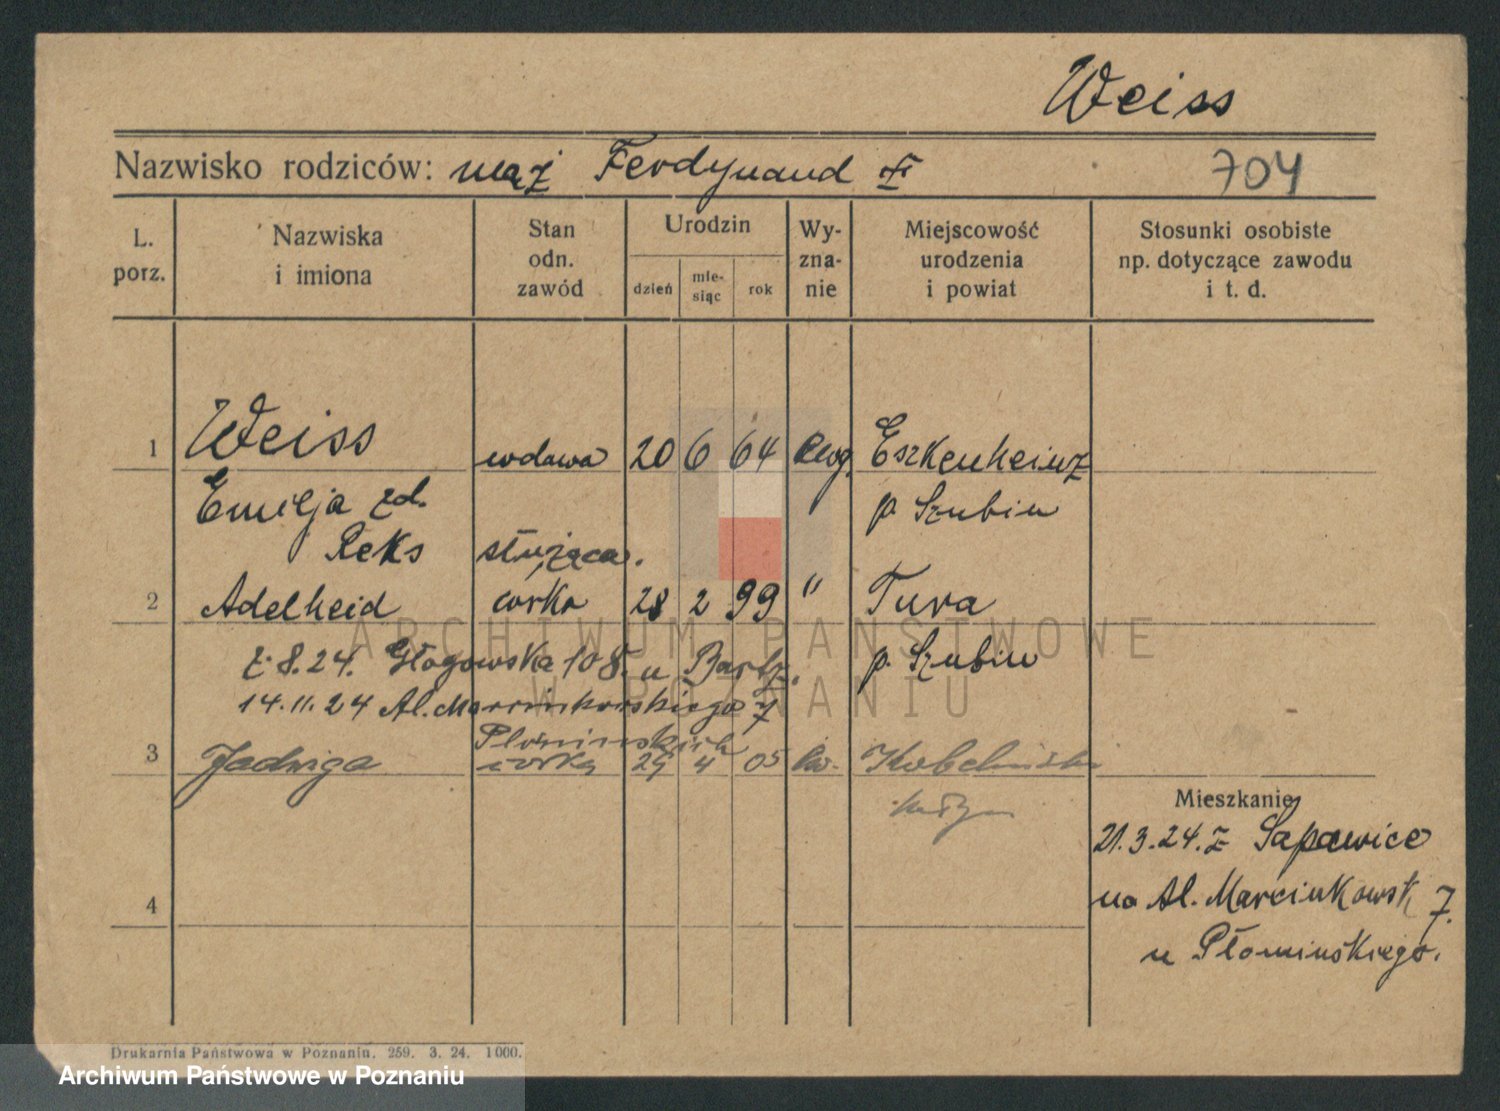 Weiss
Nazwisko rodziców: mąż Ferdynand
704
L. porz.
Nazwiska i imiona
Stan odn. zawód
Urodzin
dzień
mie-
siąc
rok
Wy-
zna-
nie
Miejscowość urodzenia i powiat
Stosunki osobiste
np. dotyczące zawodu
i t. d.
1 Weiss wdowa 20 6 64 ewg.
Emilja zd. p. Szubin
Reks służąca.
2 Adelheid córka 28 2 99 " Tura
8.24. Głogowska 108. u p. Szubin
14.11.24 Al. Marcinkowskiego 7
3 Jadwiga córka 4 05
Mieszkanie
21.3.24. z
na Al. Marcinkowsk 7.
4
u Płomińskiego.
Drukarnia Państwowa w Poznaniu. 259. 3. 24. 1000.
ARCHIWUM PAŃSTWOWE
W POZNANIU
Archiwum Państwowe w Poznaniu